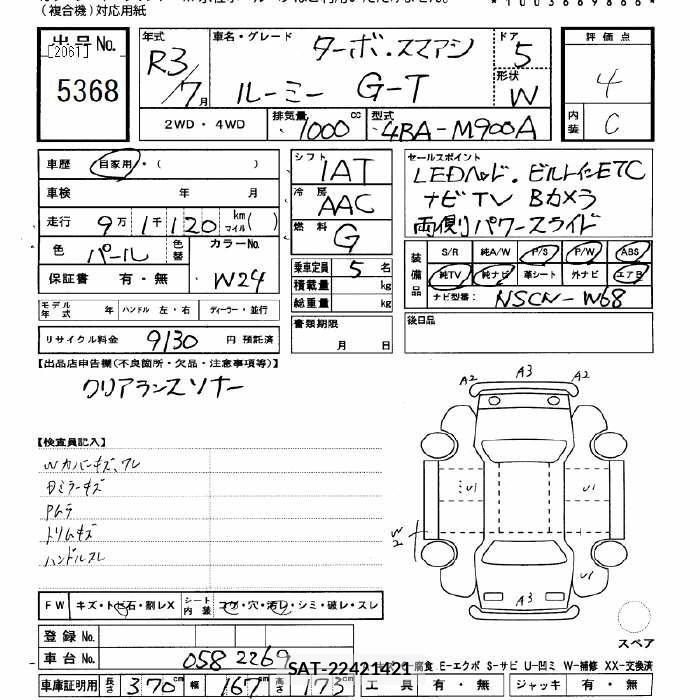 (複合機)対応用紙
出品 No.
[2061]
5368
年式
R3/7月
車名・グレード
ターボ.スマアシ
ルーミー G-T
ドア
5
形状
W
評価点
4
内装
C
2WD・4WD
排気量
1000 cc
型式
4BA-M900A
車歴 自家用・( )
車検 年 月
走行 9万1千120 km マイル( )
色 パール 色替
カラーNo. W24
保証書 有・無
シフト IAT
冷房 AAC
燃料 G
乗車定員 5 名
積載量 kg
総重量 kg
書類期限
月 日
セールスポイント
LEDヘッド.ビルトインETC
ナビTV Bカメラ
両側パワースライド
装備品
S/R 純A/W P/S P/W ABS
純TV 純ナビ 革シート 外ナビ エアB
ナビ型番: NSCN-W68
後日品
モデル年式 年 ハンドル 左・右 ディーラー・並行
リサイクル料金 9130 円 預託済
【出品店申告欄(不良箇所・欠品・注意事項等)】
クリアランスソナー
【検査員記入】
Wカバーキズ、ワレ
Dミラーキズ
Pムラ
トリムキズ
ハンドルスレ
A2 A3 A2
U1 U1
W2
U1
A3
スペア
FW キズ・トビ石・割レX
シート内装 コゲ・穴・汚レ・シミ・破レ・スレ
登録 No.
車台 No. 058 2269
SAT-22421421
C-腐食 E-エクボ S-サビ U-凹ミ W-補修 XX-交換済
車庫証明用 長さ 370 cm 幅 167 cm 高さ 173 cm
工具 有・無 ジャッキ 有・無